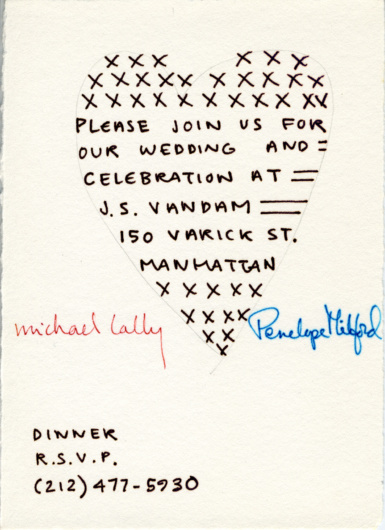 x x x x x x
x x x x x x x x x x x
x x x x x x x x x x x x
PLEASE JOIN US FOR
OUR WEDDING AND =
CELEBRATION AT =
J.S. VANDAM =
150 VARICK ST.
MANHATTAN
x x x x x
x x x x
michael lally Penelope Milford
x x
x
DINNER
R.S.V.P.
(212) 477-5930